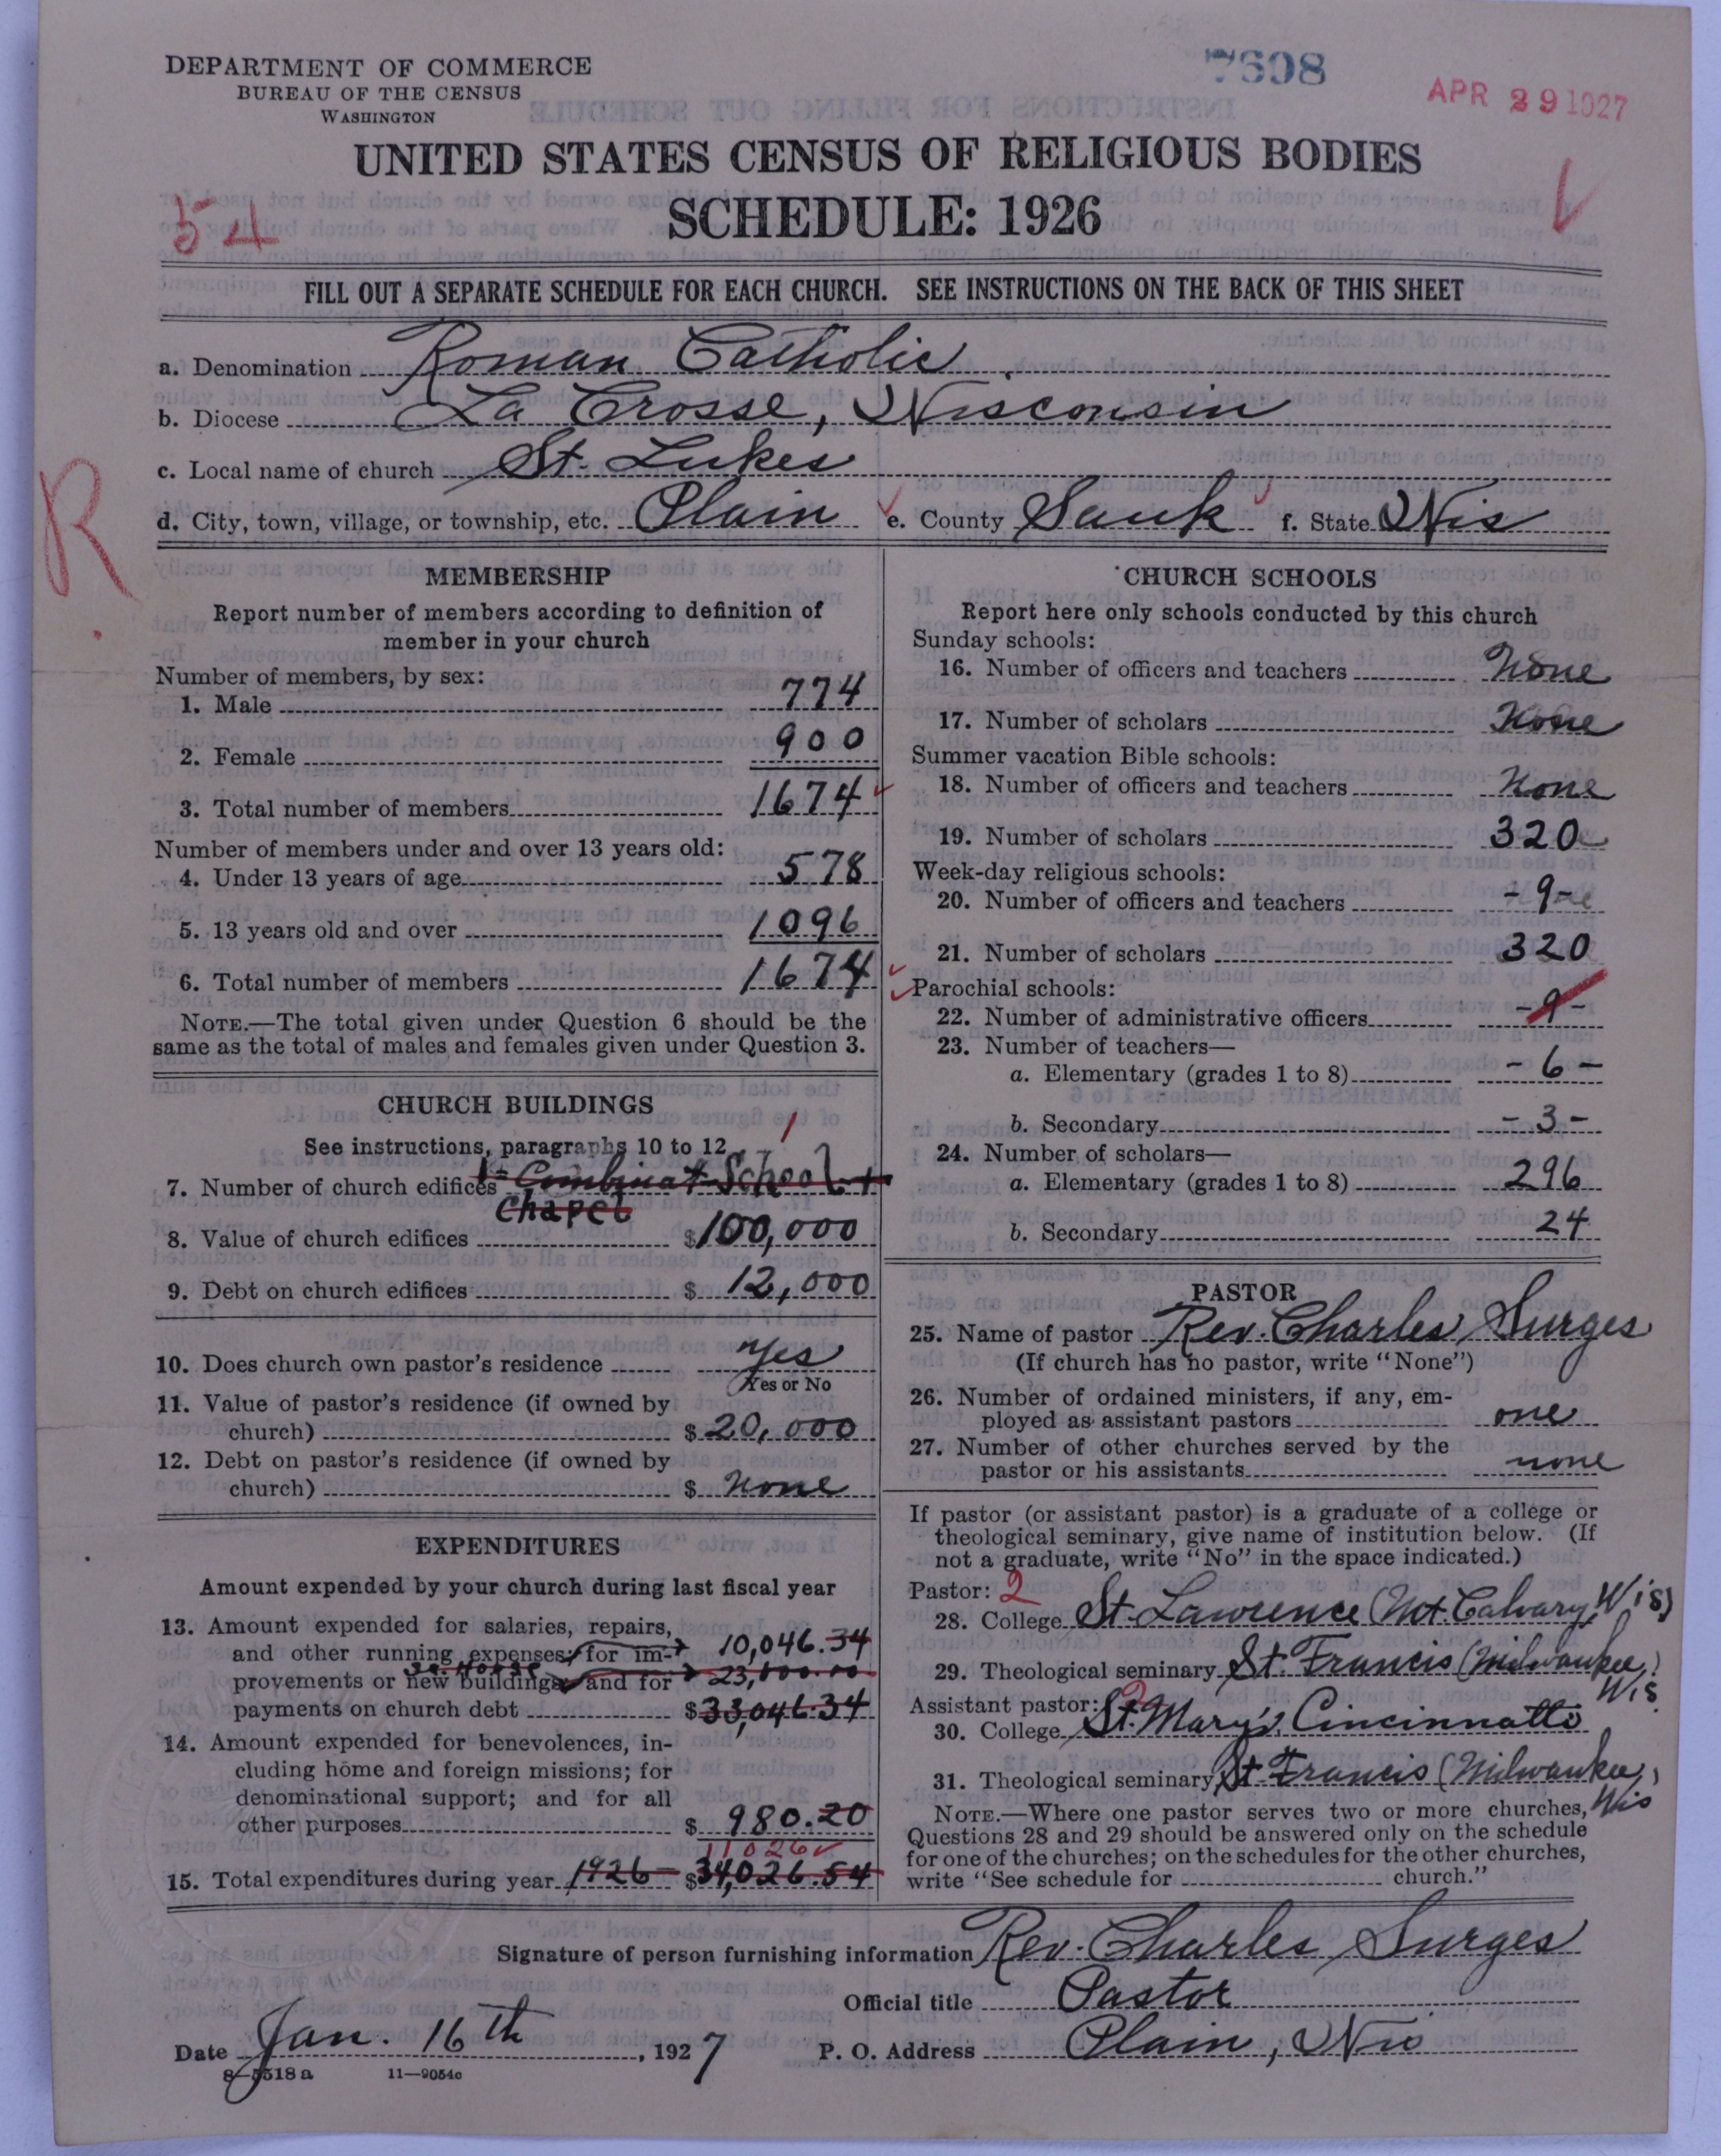 DEPARTMENT OF COMMERCE
BUREAU OF THE CENSUS
WASHINGTON
7608
APR 29 1927
UNITED STATES CENSUS OF RELIGIOUS BODIES
54
SCHEDULE: 1926
FILL OUT A SEPARATE SCHEDULE FOR EACH CHURCH. SEE INSTRUCTIONS ON THE BACK OF THIS SHEET
a. Denomination Roman Catholic
b. Diocese La Crosse, Wisconsin
c. Local name of church St. Lukes
R
d. City, town, village, or township, etc. Plain e. County Sauk f. State Wis
MEMBERSHIP
Report number of members according to definition of
member in your church
Number of members, by sex:
1. Male 774
2. Female 900
3. Total number of members 1674
Number of members under and over 13 years old:
4. Under 13 years of age 578
5. 13 years old and over 1096
6. Total number of members 1674
NOTE.—The total given under Question 6 should be the
same as the total of males and females given under Question 3.
CHURCH BUILDINGS
See instructions, paragraphs 10 to 12
1
7. Number of church edifices 1- Combinat School +
Chapel
8. Value of church edifices $100,000
9. Debt on church edifices $ 12,000
10. Does church own pastor's residence Yes
Yes or No
11. Value of pastor's residence (if owned by
church) $ 20,000
12. Debt on pastor's residence (if owned by
church) $ None
EXPENDITURES
Amount expended by your church during last fiscal year
13. Amount expended for salaries, repairs,
and other running expenses; for im- 10,046.34
provements or new buildings; and for 23,000.00
payments on church debt $33,046.34
14. Amount expended for benevolences, in-
cluding home and foreign missions; for
denominational support; and for all
other purposes $ 980.20
11026
15. Total expenditures during year 1926- $34,026.54
CHURCH SCHOOLS
Report here only schools conducted by this church
Sunday schools:
16. Number of officers and teachers None
17. Number of scholars None
Summer vacation Bible schools:
18. Number of officers and teachers None
19. Number of scholars 320
Week-day religious schools:
20. Number of officers and teachers -9-
21. Number of scholars 320
Parochial schools:
22. Number of administrative officers -9-
23. Number of teachers—
a. Elementary (grades 1 to 8) -6-
b. Secondary -3-
24. Number of scholars—
a. Elementary (grades 1 to 8) 296
b. Secondary 24
PASTOR
25. Name of pastor Rev. Charles Surges
(If church has no pastor, write "None")
26. Number of ordained ministers, if any, em-
ployed as assistant pastors one
27. Number of other churches served by the
pastor or his assistants none
If pastor (or assistant pastor) is a graduate of a college or
theological seminary, give name of institution below. (If
not a graduate, write "No" in the space indicated.)
Pastor: 2
28. College St. Lawrence (Mt. Calvary, Wis)
29. Theological seminary St. Francis (Milwaukee,
Wis
Assistant pastor: 2
30. College St. Mary's, Cincinnatto
31. Theological seminary St Francis (Milwaukee,
Wis
NOTE.—Where one pastor serves two or more churches,
Questions 28 and 29 should be answered only on the schedule
for one of the churches; on the schedules for the other churches,
write "See schedule for church."
Signature of person furnishing information Rev. Charles Surges
Official title Pastor
Date Jan. 16th, 1927 P. O. Address Plain, Wis
8-5518a 11-9054c